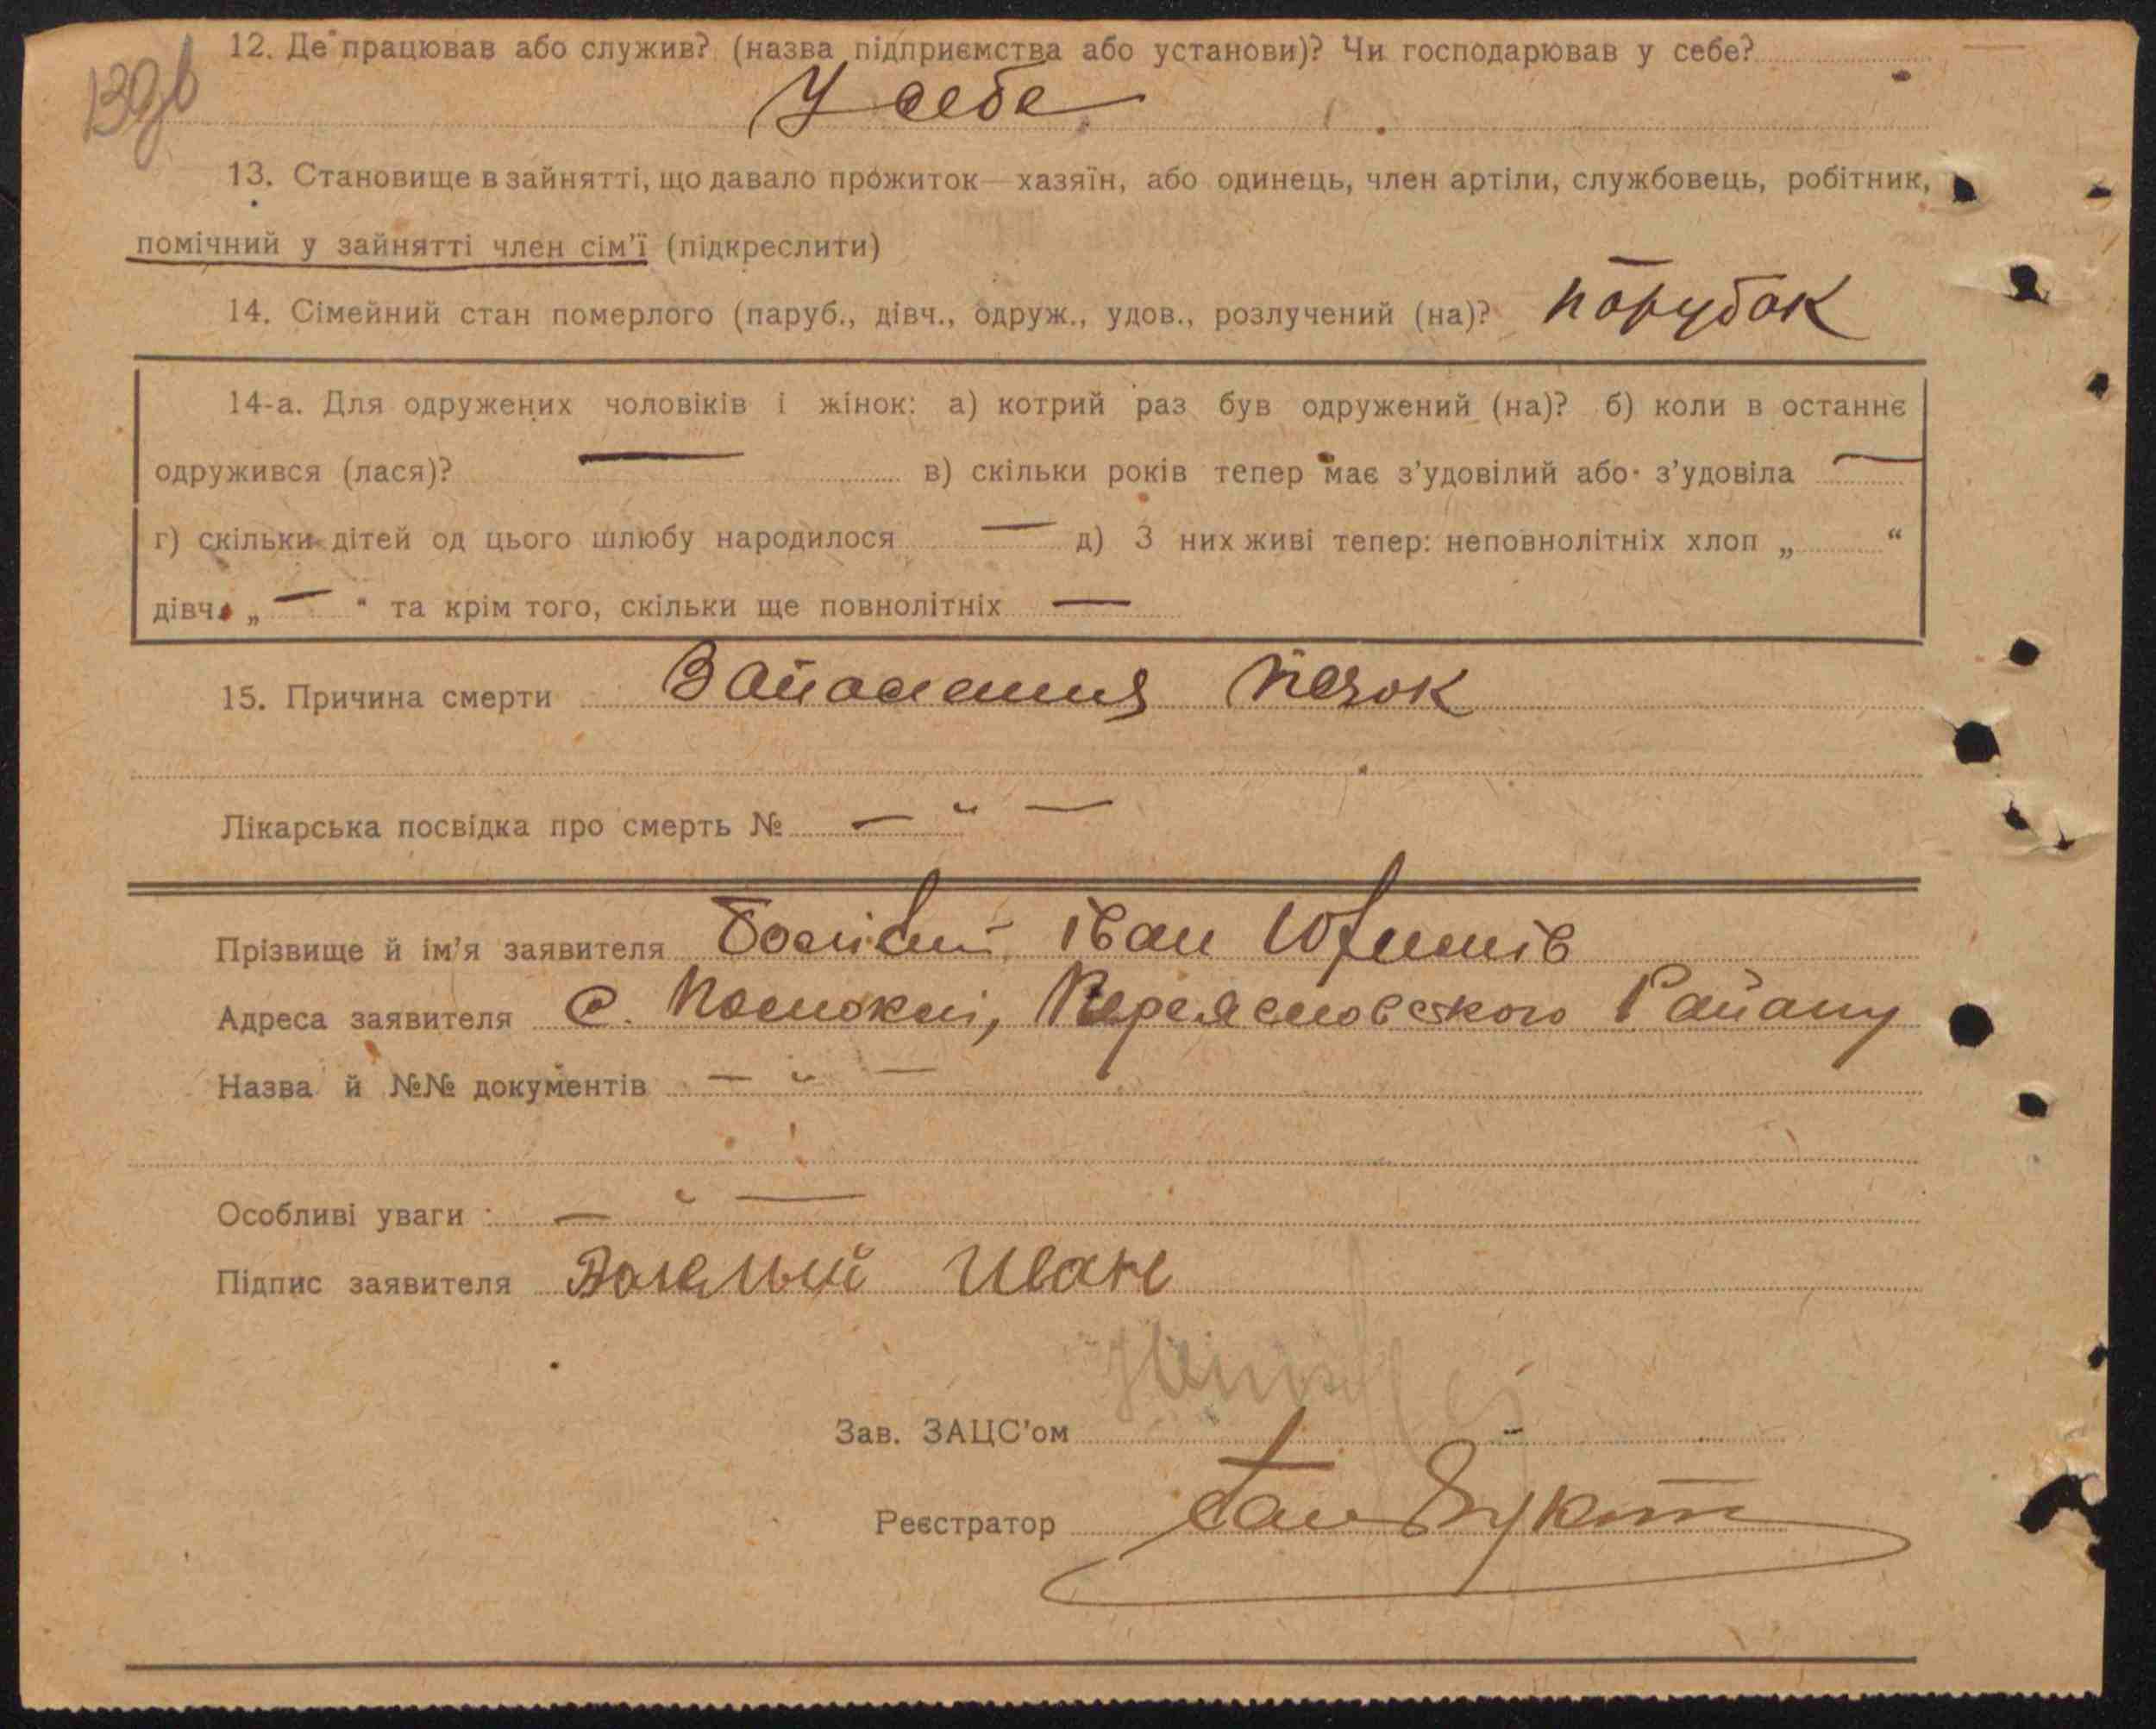 12. Де працював або служив? (назва підприємства або установи)? Чи господарював у себе?
У себе
13. Становище в зайнятті, що давало прожиток—хазяїн, або одинець, член артіли, службовець, робітник,
помічний у зайнятті член сім'ї (підкреслити)
14. Сімейний стан померлого (паруб., дівч., одруж., удов., розлучений (на)? порубок
14-а. Для одружених чоловіків і жінок: а) котрий раз був одружений (на)? б) коли в останнє
одружився (лася)? — в) скільки років тепер має з'удовілий або з'удовіла —
г) скільки дітей од цього шлюбу народилося — д) З них живі тепер: неповнолітніх хлоп „ “
дівч. „ — “ та крім того, скільки ще повнолітніх —
15. Причина смерти Запалення
Лікарська посвідка про смерть № — „ —
Прізвище й ім'я заявителя Іван
Адреса заявителя с. Району
Назва й №№ документів — „ —
Особливі уваги : — „ —
Підпис заявителя Иван
Зав. ЗАЦС'ом
Реєстратор